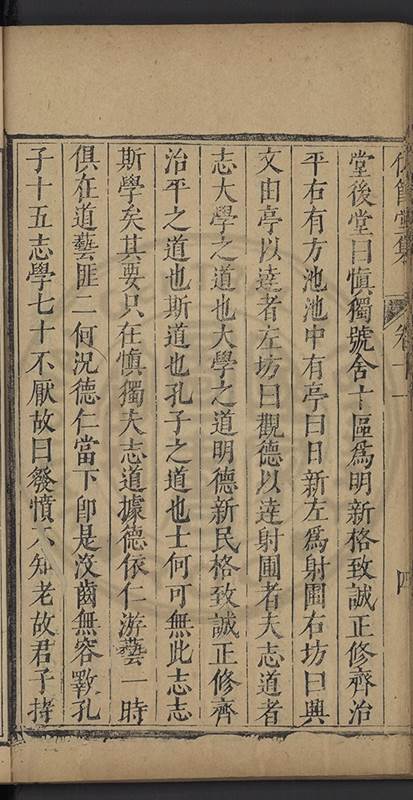 堂集 卷十一 四
堂後堂曰慎獨號舍十區爲明新格致誠正修齊治
平右有方池池中有亭曰日新左爲射圃右坊曰興
文由亭以達者左坊曰觀德以達射圃者夫志道者
志大學之道也大學之道明德新民格致誠正修齊
治平之道也斯道也孔子之道也士何可無此志志
斯學矣其要只在慎獨夫志道據德依仁游藝一時
俱在道藝匪二何況德仁當下卽是沒齒無容斁孔
子十五志學七十不厭故曰發憤不知老故君子